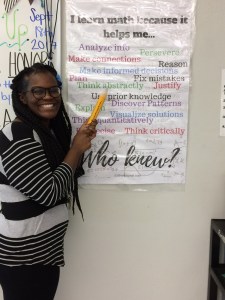 I learn math because it
helps me...
Analyze info
Persevere
Make connections
Reason
Make informed decisions
Plan
Fix mistakes
Think abstractly
Justify
prior knowledge
Discover Patterns
Visualize solutions
quantitatively
Think critically
Who knew?
Sept
HONOR